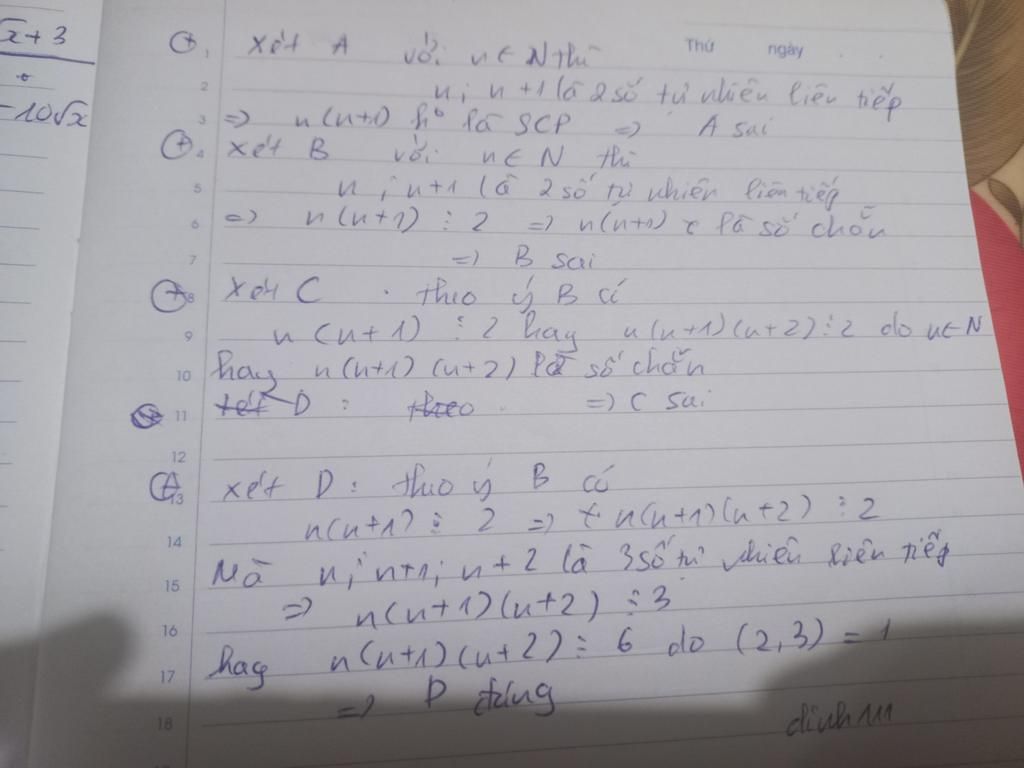 √x + 3
-10√x
Thứ ngày
1 xét A với n ∈ N thì
2 n; n+1 là 2 số tự nhiên liên tiếp
3 => n(n+1) ko là SCP => A sai
4 xét B với n ∈ N thì
5 n; n+1 là 2 số tự nhiên liên tiếp
6 => n(n+1) ⋮ 2 => n(n+1) là số chẵn
7 => B sai
8 xét C theo ý B có
9 n(n+1) ⋮ 2 hay n(n+1)(n+2) ⋮ 2 do n ∈ N
10 hay n(n+1)(n+2) là số chẵn
11 xét D: theo => C sai
12
13 xét D: theo ý B có
14 n(n+1) ⋮ 2 => n(n+1)(n+2) ⋮ 2
15 Mà n; n+1; n+2 là 3 số tự nhiên liên tiếp
16 => n(n+1)(n+2) ⋮ 3
17 hay n(n+1)(n+2) ⋮ 6 do (2,3) = 1
18 => D đúng
dinh111